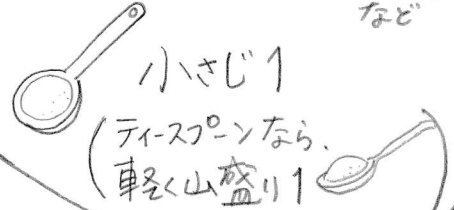 など
小さじ1
(ティースプーンなら、
軽く山盛り1)